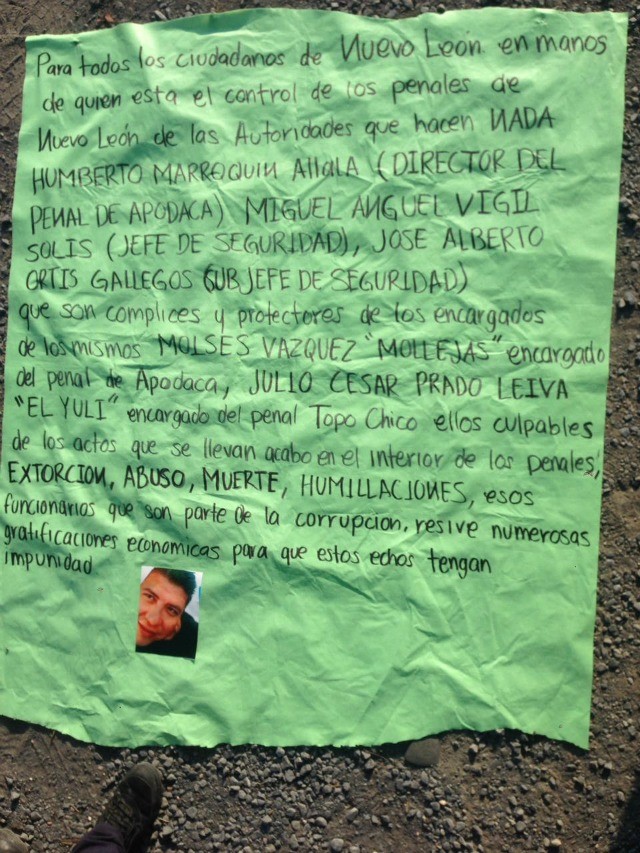 Para todos los ciudadanos de Nuevo León en manos
de quien esta el control de los penales de
Nuevo León de las Autoridades que hacen NADA
HUMBERTO MARROQUIN Allala (DIRECTOR DEL
PENAL DE APODACA) MIGUEL ANGUEL VIGIL
SOLIS (JEFE DE SEGURIDAD), JOSE ALBERTO
ORTIS GALLEGOS (SUBJEFE DE SEGURIDAD)
que son complices y protectores de los encargados
de los mismos MOISES VAZQUEZ "MOLLEJAS" encargado
del penal de Apodaca, JULIO CESAR PRADO LEIVA
"EL YULI" encargado del penal Topo Chico ellos culpables
de los actos que se llevan acabo en el interior de los penales,
EXTORCION, ABUSO, MUERTE, HUMILLACIONES, esos
funcionarios que son parte de la corrupcion, resive numerosas
gratificaciones economicas para que estos echos tengan
impunidad